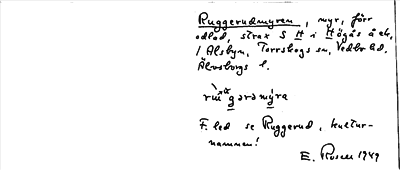 Ruggerudmyren, myr, förr
odlad, strax S H i Högås å ek,
1 Alsbyn, Torrskogs sn, Vedbo hd.
Älvsborgs l.
F. led se Ruggerud, kultur-
namnen!
E. Rosell 1949